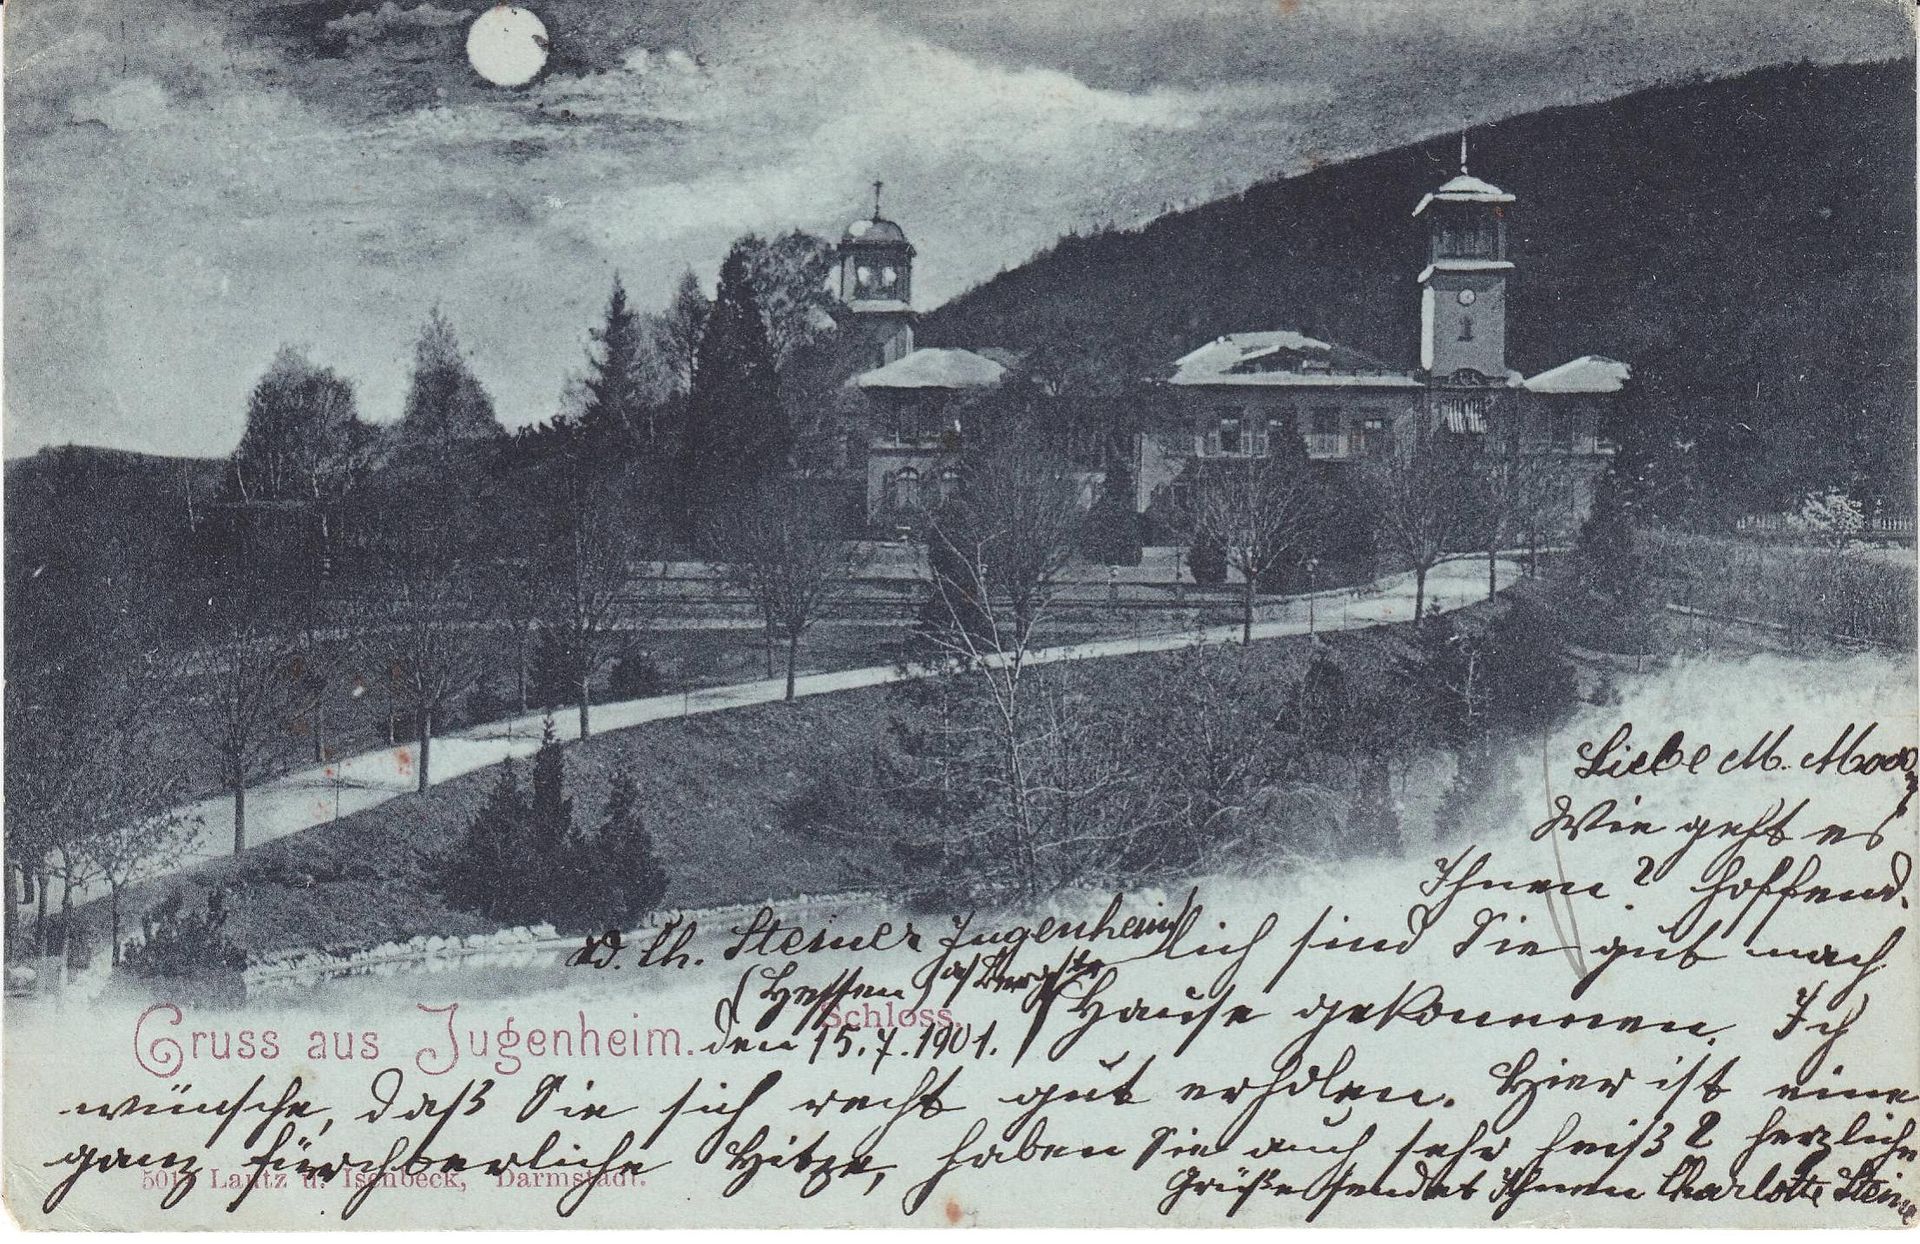 Liebe M.
Wie geht es
Ihnen? hoffent-
lich sind Sie gut nach
Hause gekommen. Ich
wünsche, daß Sie sich recht gut erholen. Hier ist eine
ganz fürchterliche Hitze, haben Sie auch sehr heiß? herzliche
Grüße sendet Ihnen Charlotte Steiner
Ch. Steiner Jugenheim
(Hessen)
den 15.7.1901.
Schloss.
Gruss aus Jugenheim.
501 Lautz u. Isenbeck, Darmstadt.